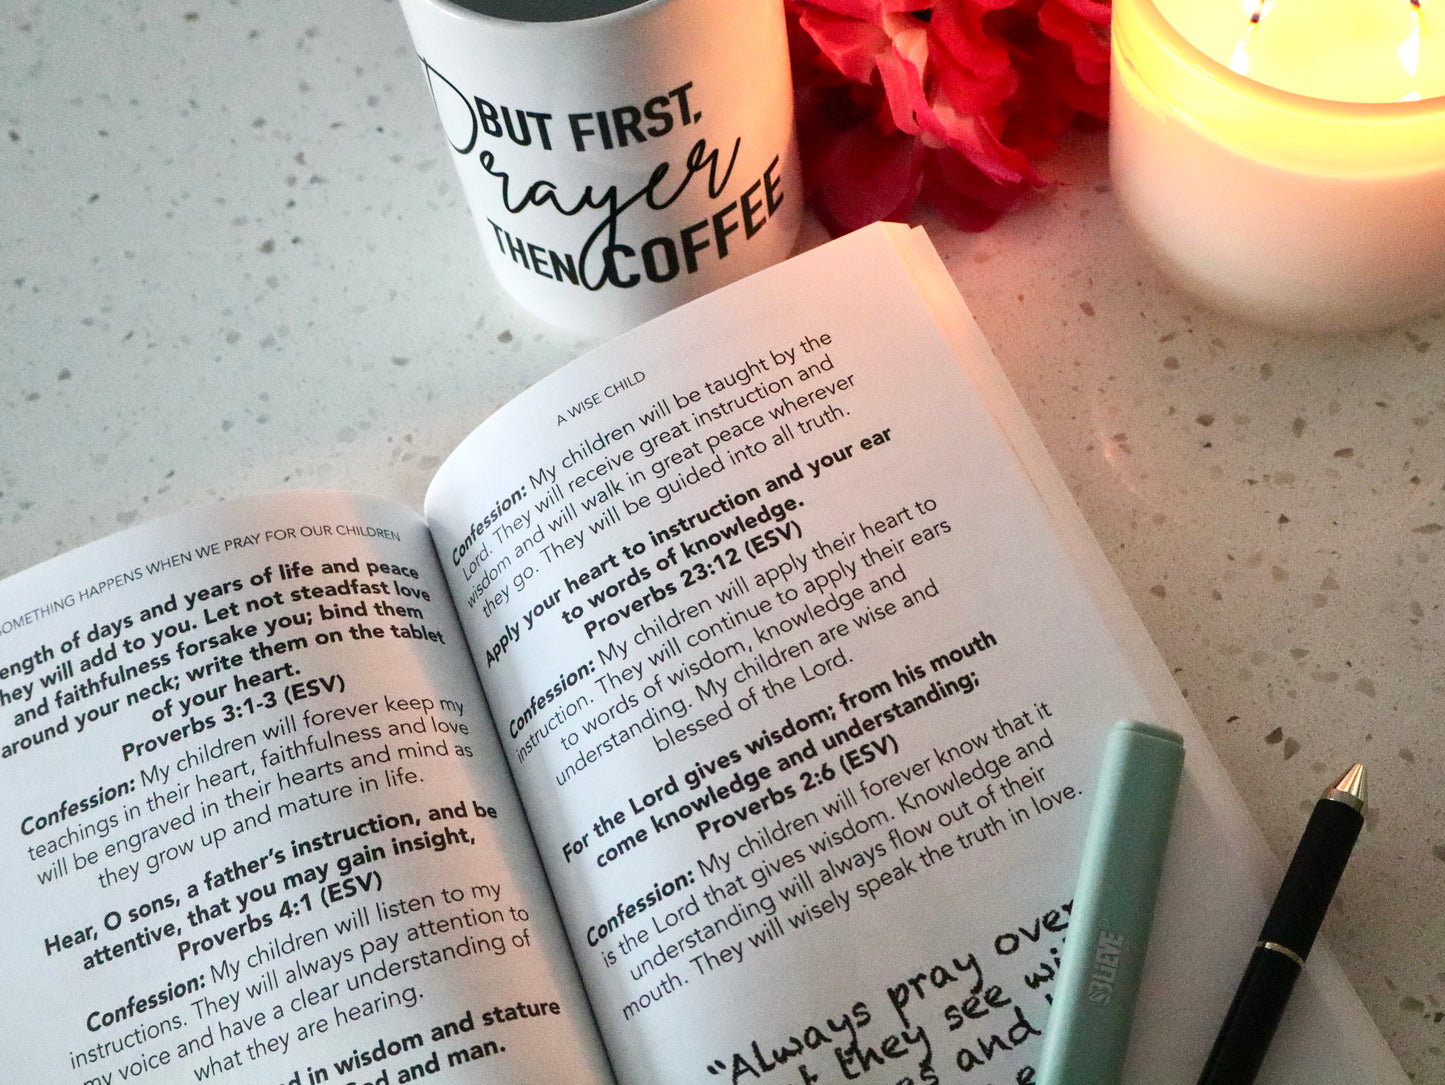 BUT FIRST,
Prayer
THEN COFFEE
SOMETHING HAPPENS WHEN WE PRAY FOR OUR CHILDREN
length of days and years of life and peace
they will add to you. Let not steadfast love
and faithfulness forsake you; bind them
around your neck; write them on the tablet
of your heart.
Proverbs 3:1-3 (ESV)
Confession: My children will forever keep my
teachings in their heart, faithfulness and love
will be engraved in their hearts and mind as
they grow up and mature in life.
Hear, O sons, a father's instruction, and be
attentive, that you may gain insight,
Proverbs 4:1 (ESV)
Confession: My children will listen to my
instructions. They will always pay attention to
my voice and have a clear understanding of
what they are hearing.
in wisdom and stature
and man.
A WISE CHILD
Confession: My children will be taught by the
Lord. They will receive great instruction and
wisdom and will walk in great peace wherever
they go. They will be guided into all truth.
Apply your heart to instruction and your ear
to words of knowledge.
Proverbs 23:12 (ESV)
Confession: My children will apply their heart to
instruction. They will continue to apply their ears
to words of wisdom, knowledge and
understanding. My children are wise and
blessed of the Lord.
For the Lord gives wisdom; from his mouth
come knowledge and understanding;
Proverbs 2:6 (ESV)
Confession: My children will forever know that it
is the Lord that gives wisdom. Knowledge and
understanding will always flow out of their
mouth. They will wisely speak the truth in love.
"Always pray over
they see
and